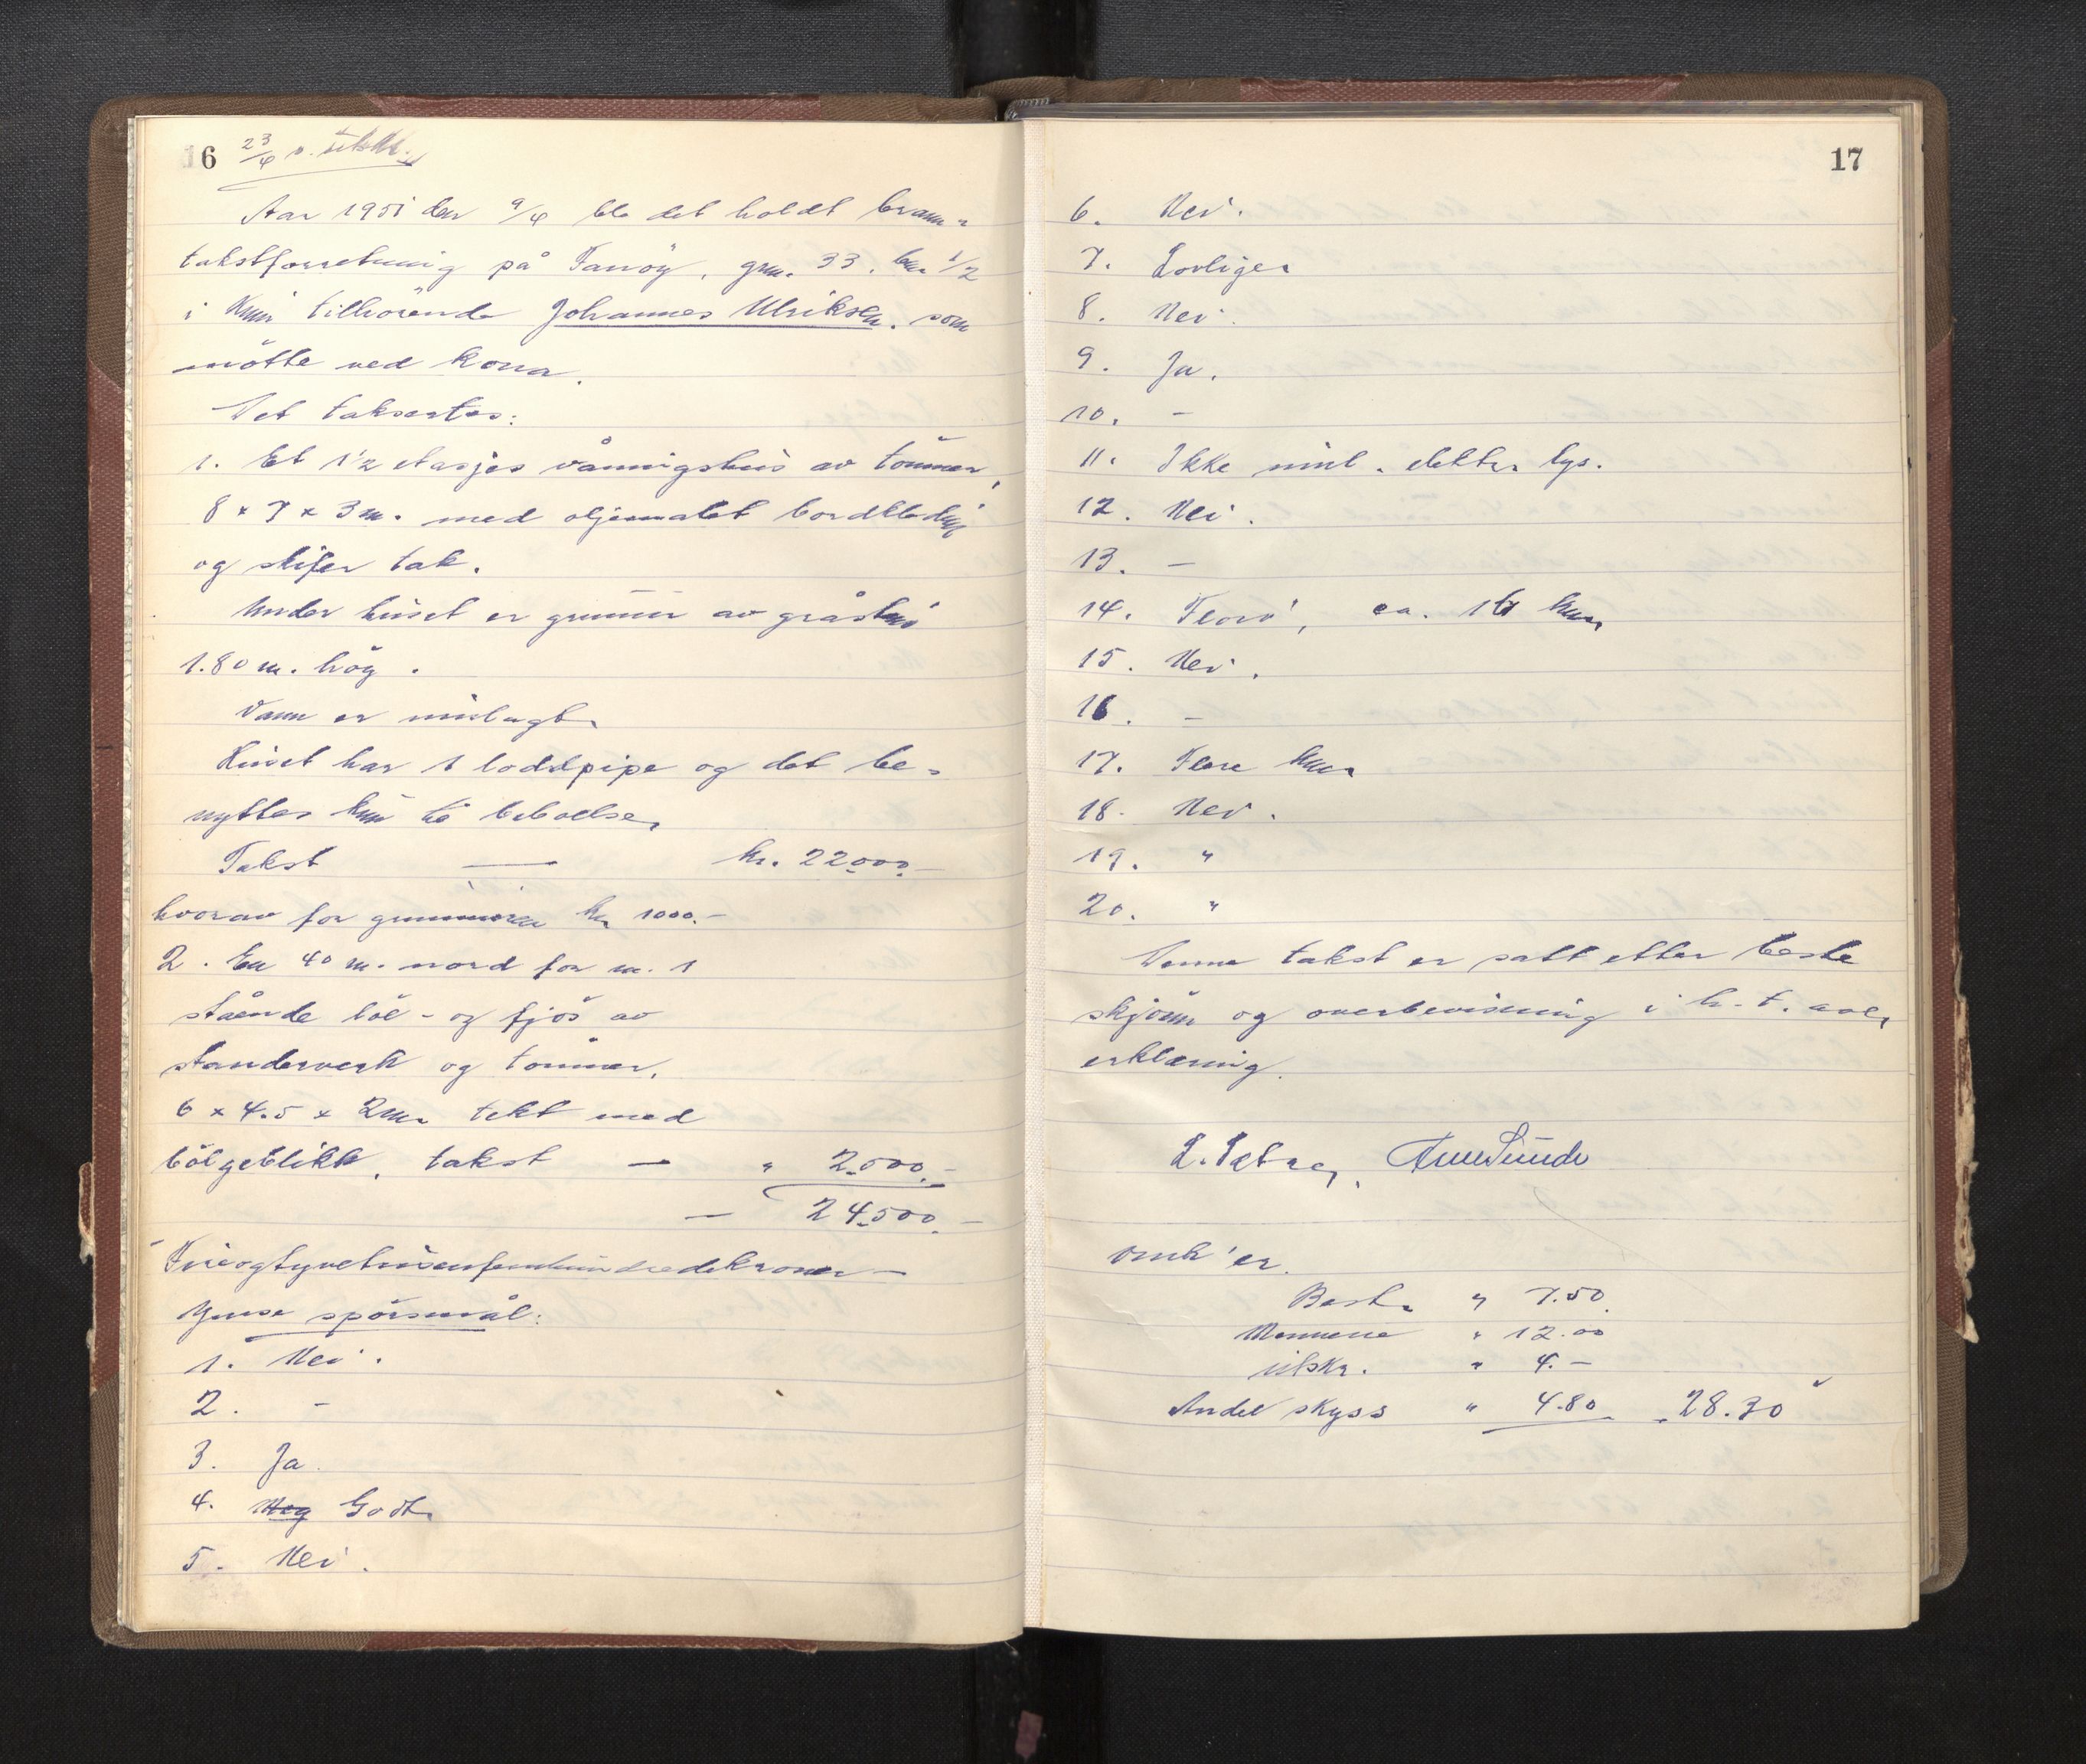 16 23/4 s. utskr.
Aar 1951 den 9/4 ble det holdt brann-
takstforretning på Fanøy, gnr. 33. bnr. 1/2
i Kinn tilhørende Johannes Ulriksen, som
møtte ved kona.
Det taksertes:
1. Et 1½ etasjes våningshus av tømmer,
8 x 7 x 3 m. med oljemalet bordkledning
og skifer tak.
Under huset er grunnur av gråstein
1.80 m. høg.
Vann er innlagt.
Huset har 1 loddpipe og det be-
nyttes kun til beboelse.
Takst — kr. 22.000.-
hvorav for grunnmuren kr. 1000.-
2. En 40 m. nord for nr. 1
stående løe- og fjøs av
standerverk og tømmer,
6 x 4.5 x 2 m. tekt med
bølgeblikk, takst — " 2.000.-
— 24.500.-
Fireogtyvetusenfemhundredekroner —
Ymse spørsmål:
1. Nei.
2. -
3. Ja.
4. Meg Godt.
5. Nei.
17
6. Nei.
7. Lovlige.
8. Nei.
9. Ja.
10. -
11. Ikke innl. elektr. lys.
12. Nei.
13. -
14. Florø, ca. 10 km
15. Nei.
16. -
17. Flere km.
18. Nei.
19. "
20. "
Denne takst er satt etter beste
skjønn og overbevisning i h.t. avl.
erklæring.
Arne Sunde
Omk'er.
Best. " 7.50
Mennene " 12.00
Utskr. " 4.-
Andel skyss " 4.80 28.30